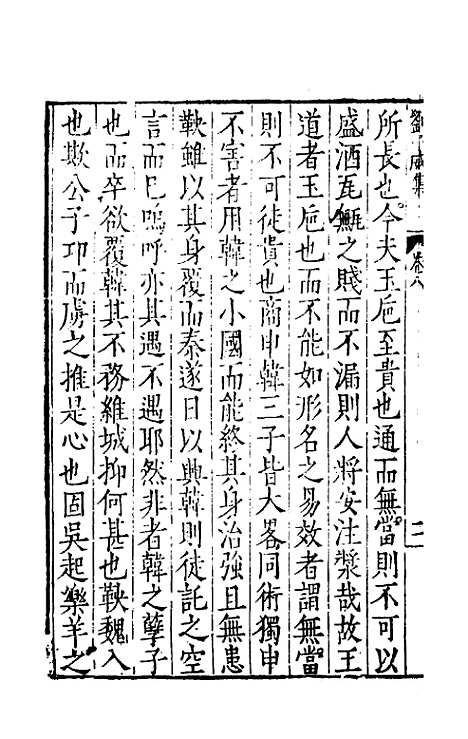 劉子威集
卷八
二
所長也今夫玉巵至貴也通而無當則不可以
盛酒瓦甂之賤而不漏則人將安注漿哉故王
道者玉巵也而不能如形名之易效者謂無當
則不可徒貴也商申韓三子皆大畧同術獨申
不害者用韓之小國而能終其身治強且無患
鞅雖以其身覆而秦遂日以興韓則徒託之空
言而已嗚呼亦其遇不遇耶然非者韓之孽子
也而卒欲覆韓其不務維城抑何甚也鞅魏入
也欺公子卬而虜之推是心也固吳起樂羊之